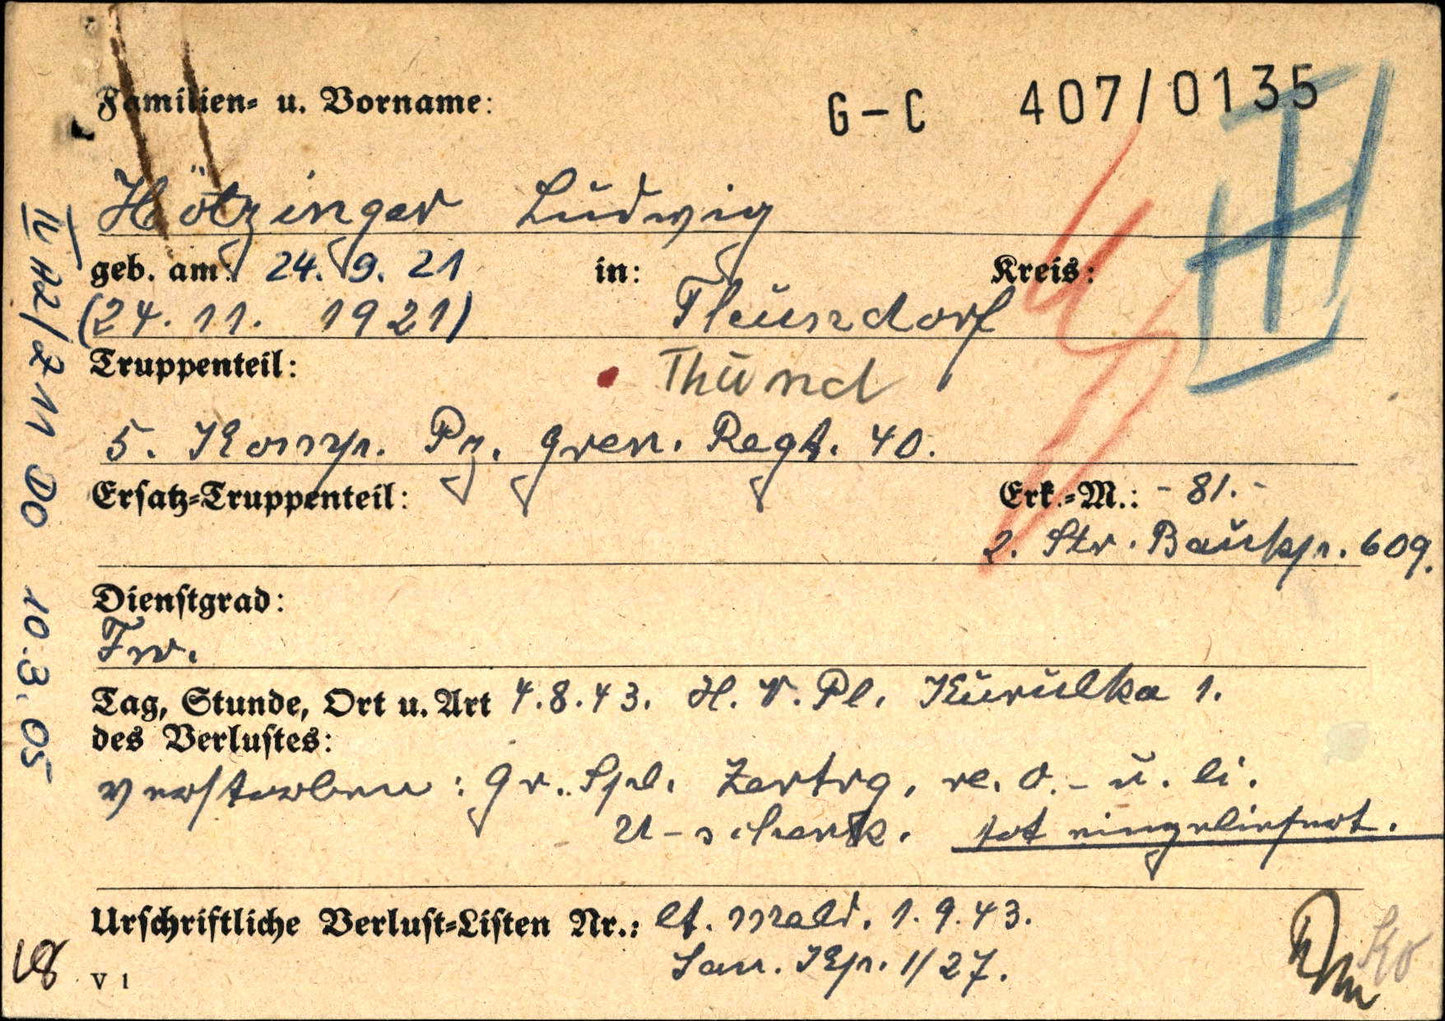 Familien- u. Vorname:
G-C 407/0135
Hötzinger Ludwig
geb. am: 24.9.21 in: Kreis:
(24.11. 1921) Thundorf
Truppenteil: Thund
5. Komp. Pz. Gren. Regt. 40.
Ersatz-Truppenteil: Erk.-M.: -81.-
2. Str. Baukp. 609.
Dienstgrad:
Fw.
Tag, Stunde, Ort u. Art 4.8.43. H.V.Pl. Kurulka 1.
des Verlustes:
verstorben: Gr. Spl. Zertrg. re. O.- u. li.
U-schenk. tot eingeliefert.
Urschriftliche Verlust-Listen Nr.: lt. Meld. 1.9.43.
San. Kp. 1/27.
V 1
10.3.05